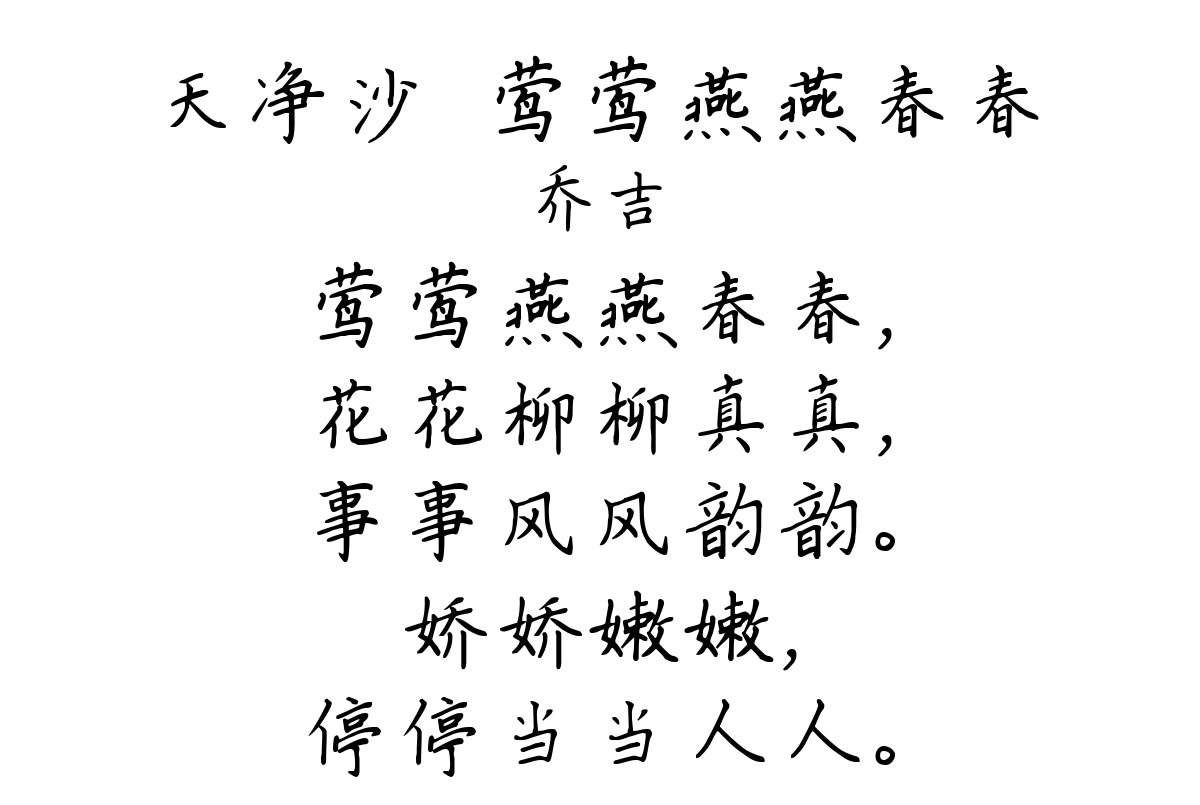 天净沙 莺莺燕燕春春
乔吉
莺莺燕燕春春，
花花柳柳真真，
事事风风韵韵。
娇娇嫩嫩，
停停当当人人。